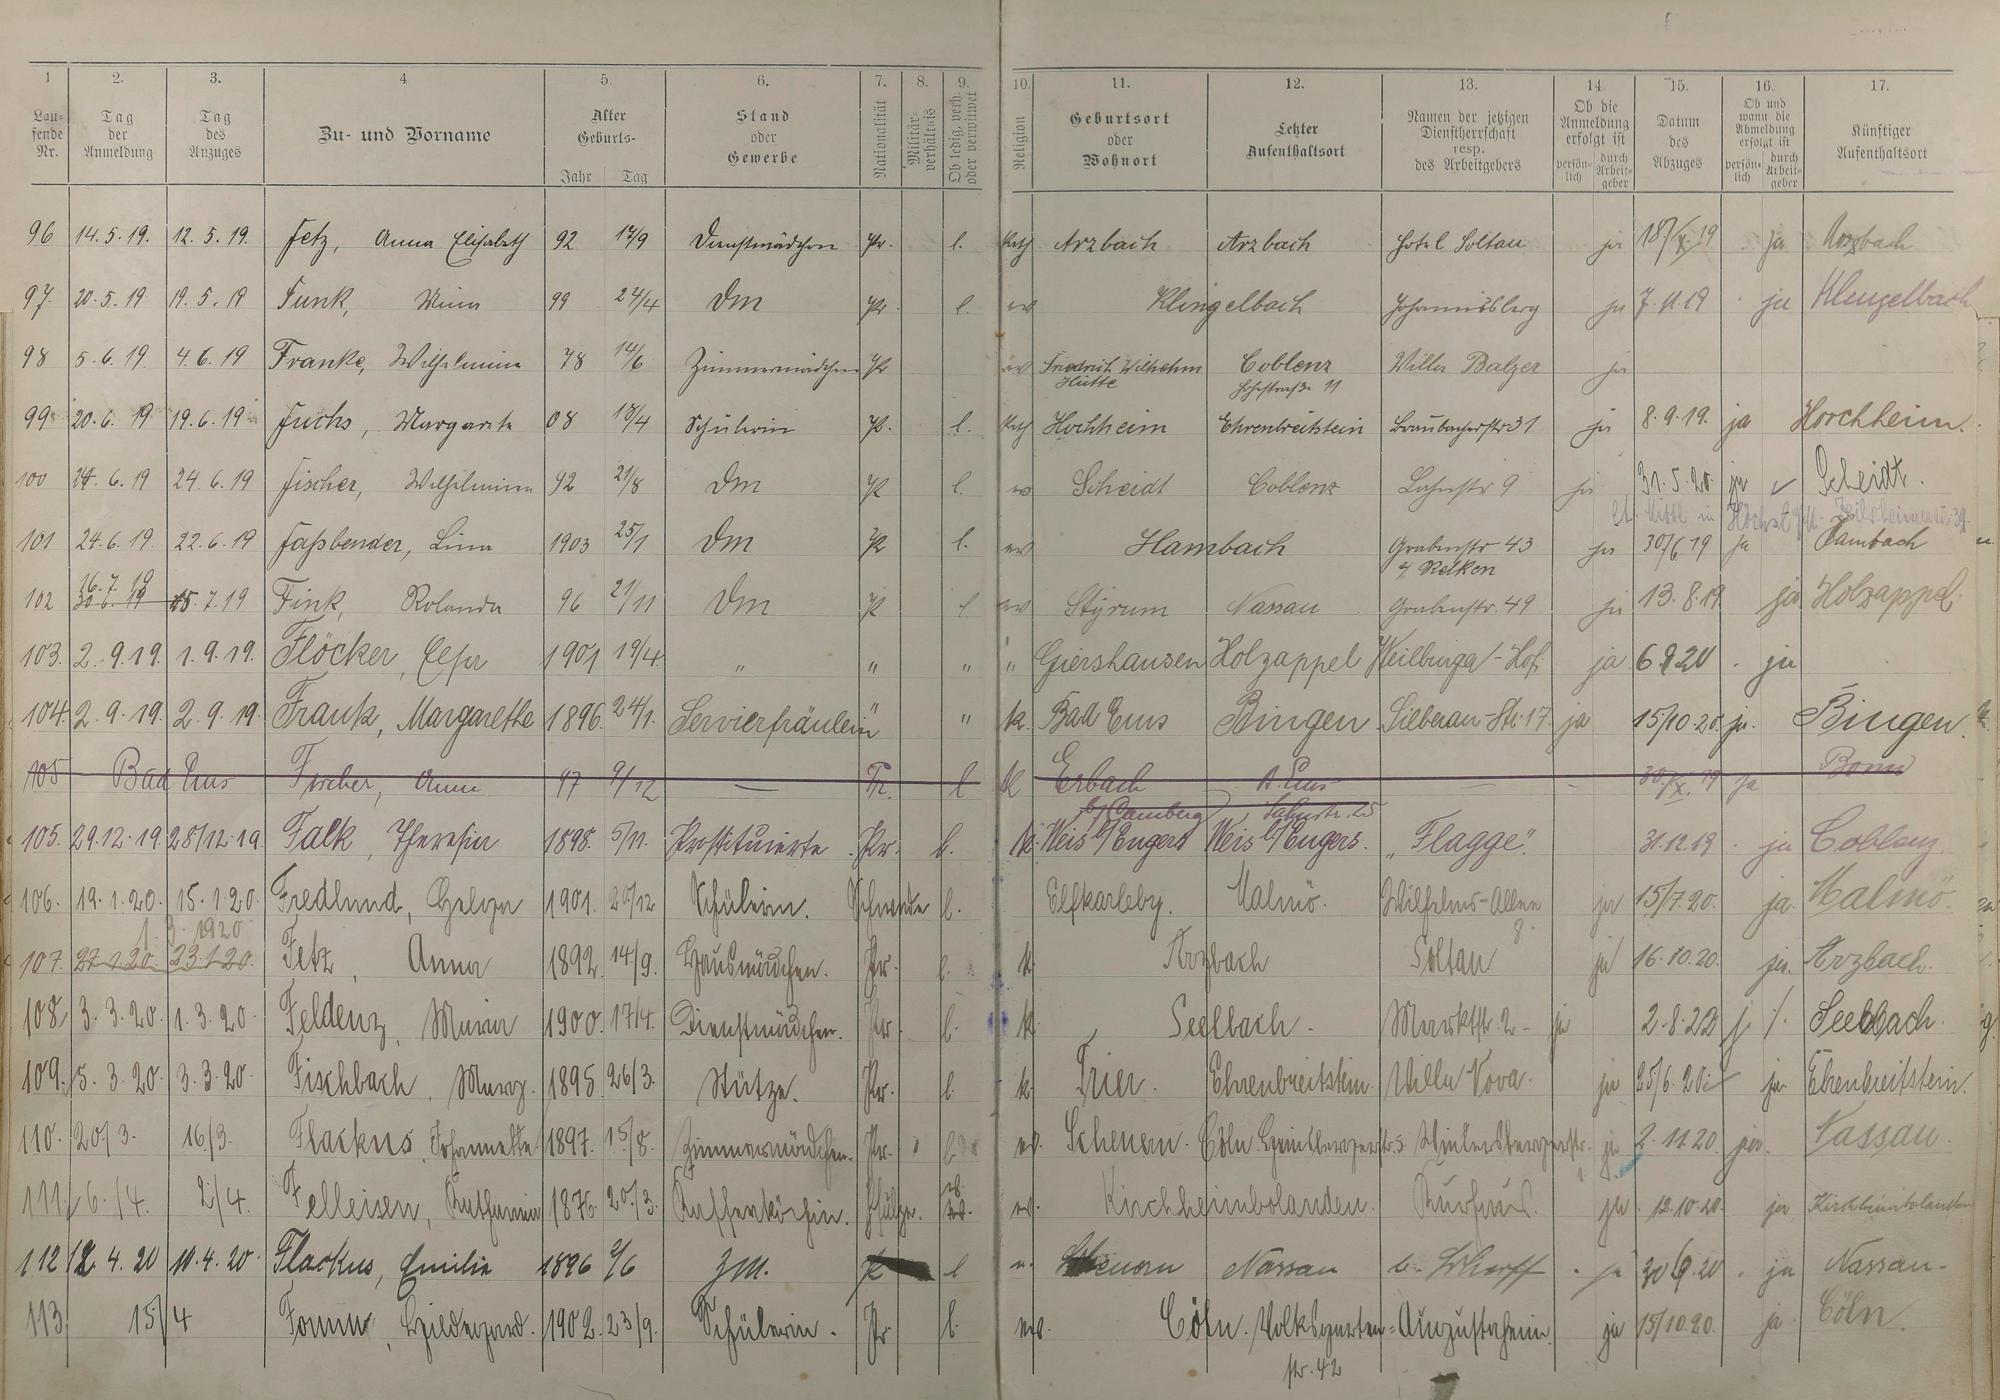 1 2. 3. 4 5. 6. 7. 8. 9. 10. 11. 12. 13. 14. 15. 16. 17.
Lau-
fende
Nr.
Tag
der
Anmeldung
Tag
des
Anzuges
Zu- und Vorname
Alter
Geburts-
Jahr Tag
Stand
oder
Gewerbe
Nationalität
Militär-
verhältnis
Ob ledig, verh.
oder verwitwet
Religion
Geburtsort
oder
Wohnort
Letzter
Aufenthaltsort
Namen der jetzigen
Dienstherrschaft
resp.
des Arbeitgebers
Ob die
Anmeldung
erfolgt ist
persön-
lich
durch
Arbeit-
geber
Datum
des
Abzuges
Ob und
wann die
Abmeldung
erfolgt ist
persön-
lich
durch
Arbeit-
geber
Künftiger
Aufenthaltsort
96 14.5.19. 12.5.19. Fetz, Anna Elisabeth 92 14/9 Dienstmädchen Pr. l. Kath Arzbach Arzbach Hotel Soltau ja 18/X.19 ja Arzbach
97. 20.5.19 19.5.19 Funk, Minna 99 24/4 Dm Pr. l. ev Klingelbach Johannisberg ja 7.11.19 ja Klingelbach
98 5.6.19. 4.6.19 Franke, Wilhelmine 78 14/6 Zimmermädchen Pr ev Friedrich Wilhelms Coblenz Villa Balzer ja
Hütte Hohestraße 11
99 20.6.19 19.6.19 Fuchs, Margarete 08 18/4 Schülerin Pr. l. Kath Hochheim Ehrenbreitstein Braubacherstr 31 ja 8.9.19. ja Horchheim.
100 24.6.19 24.6.19 Fischer, Wilhelmine 92 21/8 Dm Pr l. ev Scheidt Coblenz Lahnstr 9 ja 31.5.20. ja Scheidt.
101 24.6.19. 22.6.19 Faßbender, Lina 1903 25/1 Dm Pr l. ev Hambach Grabenstr 43 ja 30/6 19 ja Hambach
b/ Relken
16.7.19
102 30.6.19 15.7.19 Fink, Rolanda 96 21/11 Dm Pr l ev Styrum Nassau Grabenstr. 49 ja 13.8.19 ja Holzappel.
103. 2.9.19. 1.9.19. Flöcker, Elsa 1901 19/4 " " " " Giershausen Holzappel Weilburger-Hof. ja 6.9.20 ja
104. 2.9.19. 2.9.19. Frank, Margarethe 1896. 24/1. Servierfräulein " " k. Bad Ems Bingen. Silberau-Str. 17. ja 15/10.20. ja. Bingen.
105 Bad Ems Fischer, Anna 97 9/12 — Pr. l K Erbach B. Ems — — 30/X.19 ja Bonn
b/ Camberg Lahnstr. 25
105. 29.12.19. 28/12.19. Falk, Theresia 1898. 5/11. Prostituierte Pr. l. k. Weis b/Engers Weis b/Engers. "Flagge". 31.12.19 ja Coblenz.
106. 19.1.20. 15.1.20. Fredlund, Helga 1901. 20/12 Schülerin. Schwede l. Elfkarleby. Malmö. Wilhelms-Allee ja 15/7.20. ja. Malmö.
1.3.1920 8.
107. 27.1.20. 23.1.20. Fetz, Anna 1892. 14/9. Hausmädchen. Pr. l. k. Arzbach Soltau ja 16.10.20. ja. Arzbach.
108. 3.3.20. 1.3.20. Feldenz, Maria 1900. 17/4. Dienstmädchen. Pr. l. k. Seelbach. Marktstr. 2 ja 2.8.20 j. /. Seelbach.
109. 5.3.20. 3.3.20. Fischbach, Marg. 1895 26/3. Stütze. Pr. l. k. Trier. Ehrenbreitstein. Villa Nova. ja 25/6.20. ja. Ehrenbreitstein.
110. 20/3. 16/3. Flackus, Johannette 1897. 15/8. Zimmermädchen. Pr. l. ev. Scheuern. Cöln ja 2.11.20 ja. Nassau.
111. 6./4. 2/4. Felleisen, Katharina 1876. 20/3. Kaffeeköchin. Pfälzer. ev. Kirchheimbolanden. Kurhaus. ja 12.10.20. ja Kirchheimbolanden
112 12.4.20 10.4.20. Flackus, Emilie 1896 2/6 ZM. l Scheuern Nassau b. Scharff ja 30/9.20 ja Nassau-
113. 15/4 Fomm, Hildegard. 1902. 23/9. Schülerin. Pr. l. ev. Cöln. Volksgarten- Augustaheim. ja 15/10.20. ja. Cöln.
str. 42